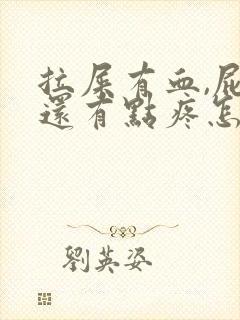 拉屎有血,屁
還有點疼怎
劉英姿